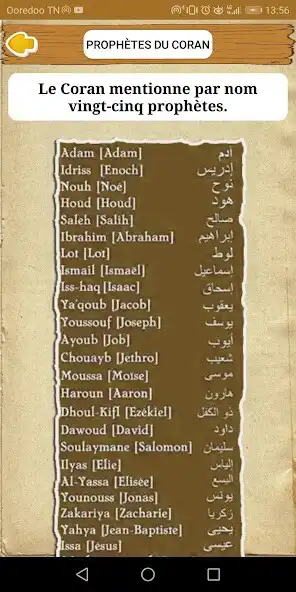 Ooredoo TN 13:56
PROPHÈTES DU CORAN
Le Coran mentionne par nom
vingt-cinq prophètes.
Adam [Adam] آدم
Idriss [Enoch] إدريس
Nouh [Noé] نوح
Houd [Houd] هود
Saleh [Salih] صالح
Ibrahim [Abraham] إبراهيم
Lot [Lot] لوط
Ismail [Ismaël] إسماعيل
Iss-haq [Isaac] إسحاق
Ya'qoub [Jacob] يعقوب
Youssouf [Joseph] يوسف
Ayoub [Job] أيوب
Chouayb [Jethro] شعيب
Moussa [Moïse] موسى
Haroun [Aaron] هارون
Dhoul-Kifl [Ezékiel] ذو الكفل
Dawoud [David] داود
Soulaymane [Salomon] سليمان
Ilyas [Elie] إلياس
Al-Yassa [Elisée] اليسع
Younouss [Jonas] يونس
Zakariya [Zacharie] زكريا
Yahya [Jean-Baptiste] يحيى
Issa [Jésus] عيسى